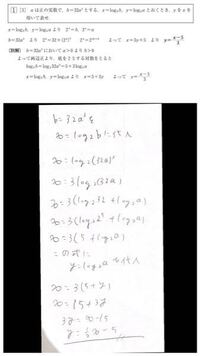 1 [3] aは正の実数で，b=32a³とする。x=log₂b，y=log₂aとおくとき，yをxを
用いて表せ
x=log₂b，y=log₂aより 2ˣ=b，2ʸ=a
b=32a³ より 2ˣ=32×(2ʸ)³ 2ˣ=2³ʸ⁺⁵ よって x=3y+5 より y=(x-5)/3
b=32a³において a>0より b>0
よって両辺正より，底を2とする対数をとると
log₂b=log₂32a³=5+3log₂a
x=log₂b，y=log₂aより x=5+3y よって y=(x-5)/3
b=32a³を
x=log₂bに代入
x=log₂(32a)³
x=3log₂(32a)
x=3(log₂32+log₂a)
x=3(log₂2⁵+log₂a)
x=3(5+log₂a)
この式に
y=log₂aを代入
x=3(5+y)
x=15+3y
3y=x-15
y=1/3x-5